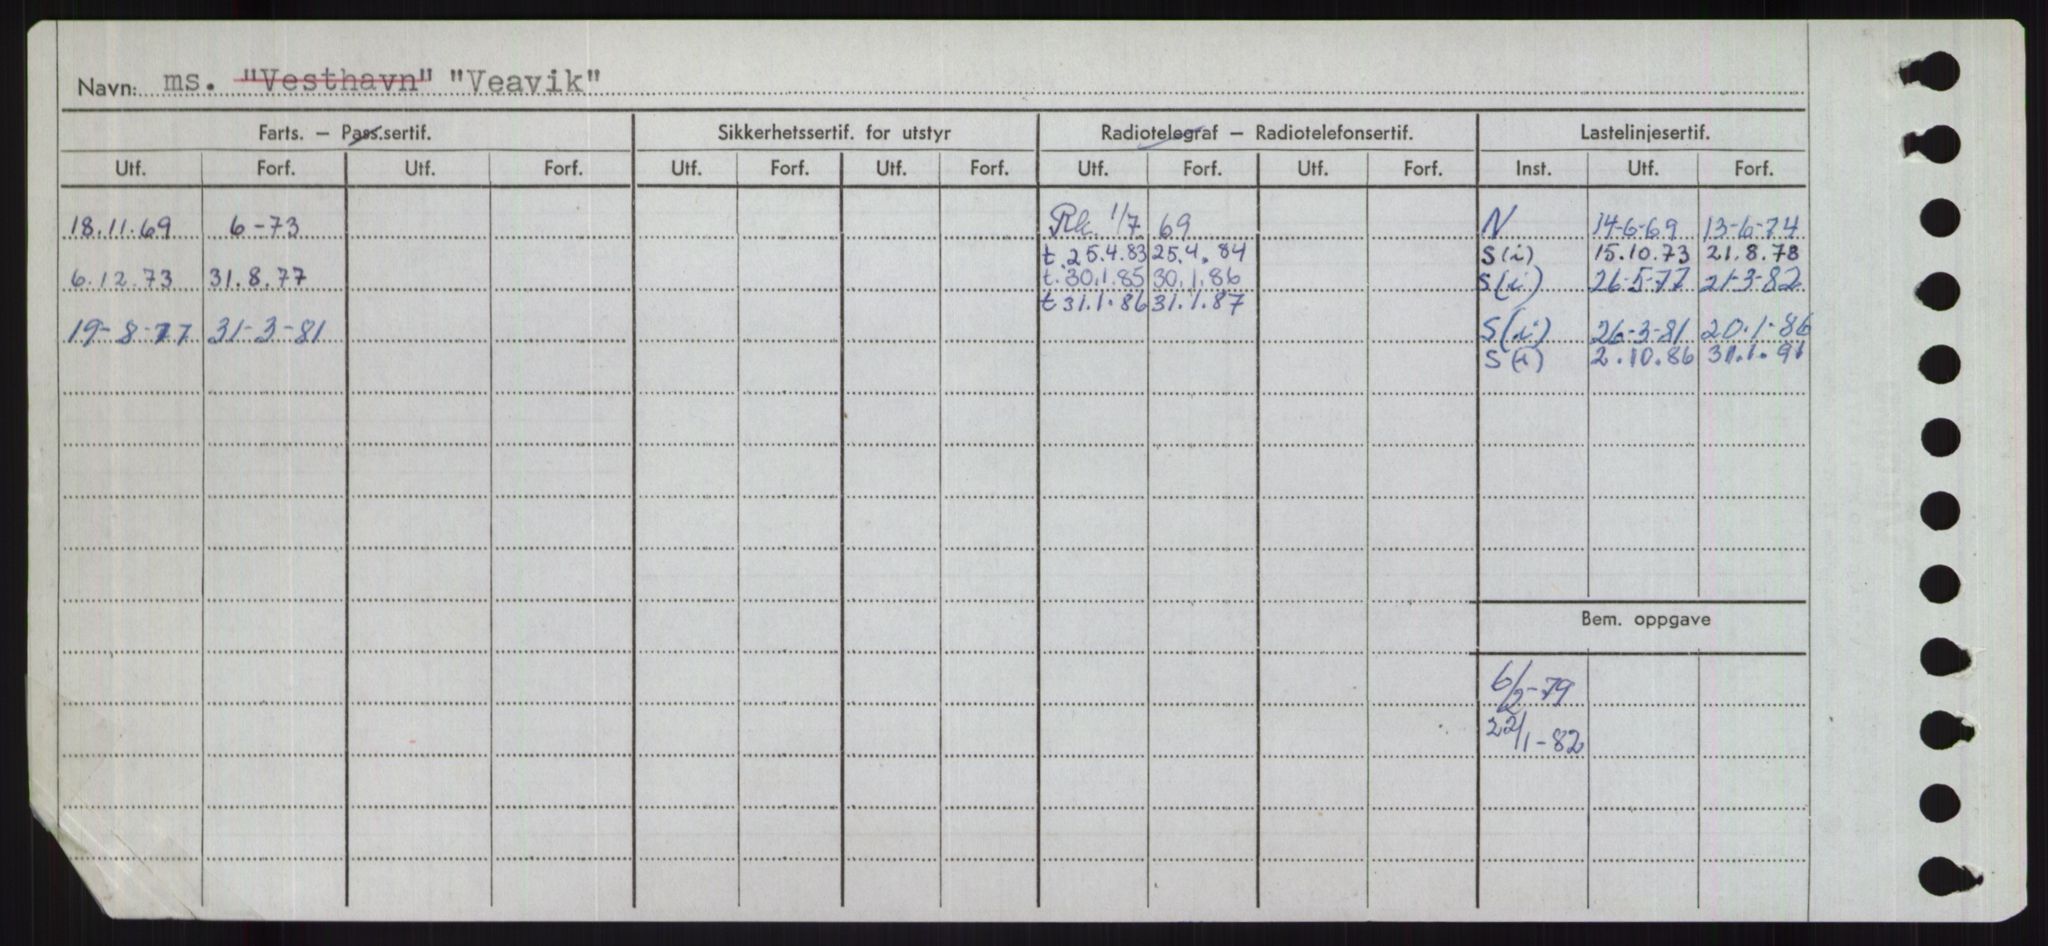 Navn: ms. "Vesthavn" "Veavik"
Farts. – Pass.sertif. Sikkerhetssertif. for utstyr Radiotelegraf – Radiotelefonsertif. Lastelinjesertif.
Utf. Forf. Utf. Forf. Utf. Forf. Utf. Forf. Utf. Forf. Utf. Forf. Inst. Utf. Forf.
18.11.69 6-73 Rk. 1/7 69 N 14-6-69 13-6-74
t.25.4.83 25.4.84 S(i) 15.10.73 21.8.78
6.12.73 31.8.77 t.30.1.85 30.1.86 S(i) 26-5-77 21-3-82
t 31.1.86 31.1.87
19-8-77 31-3-81 S(i) 26-3-81 20.1-86
S(i) 2.10.86 31.1.91
Bem. oppgave
6/2-79
22/1-82